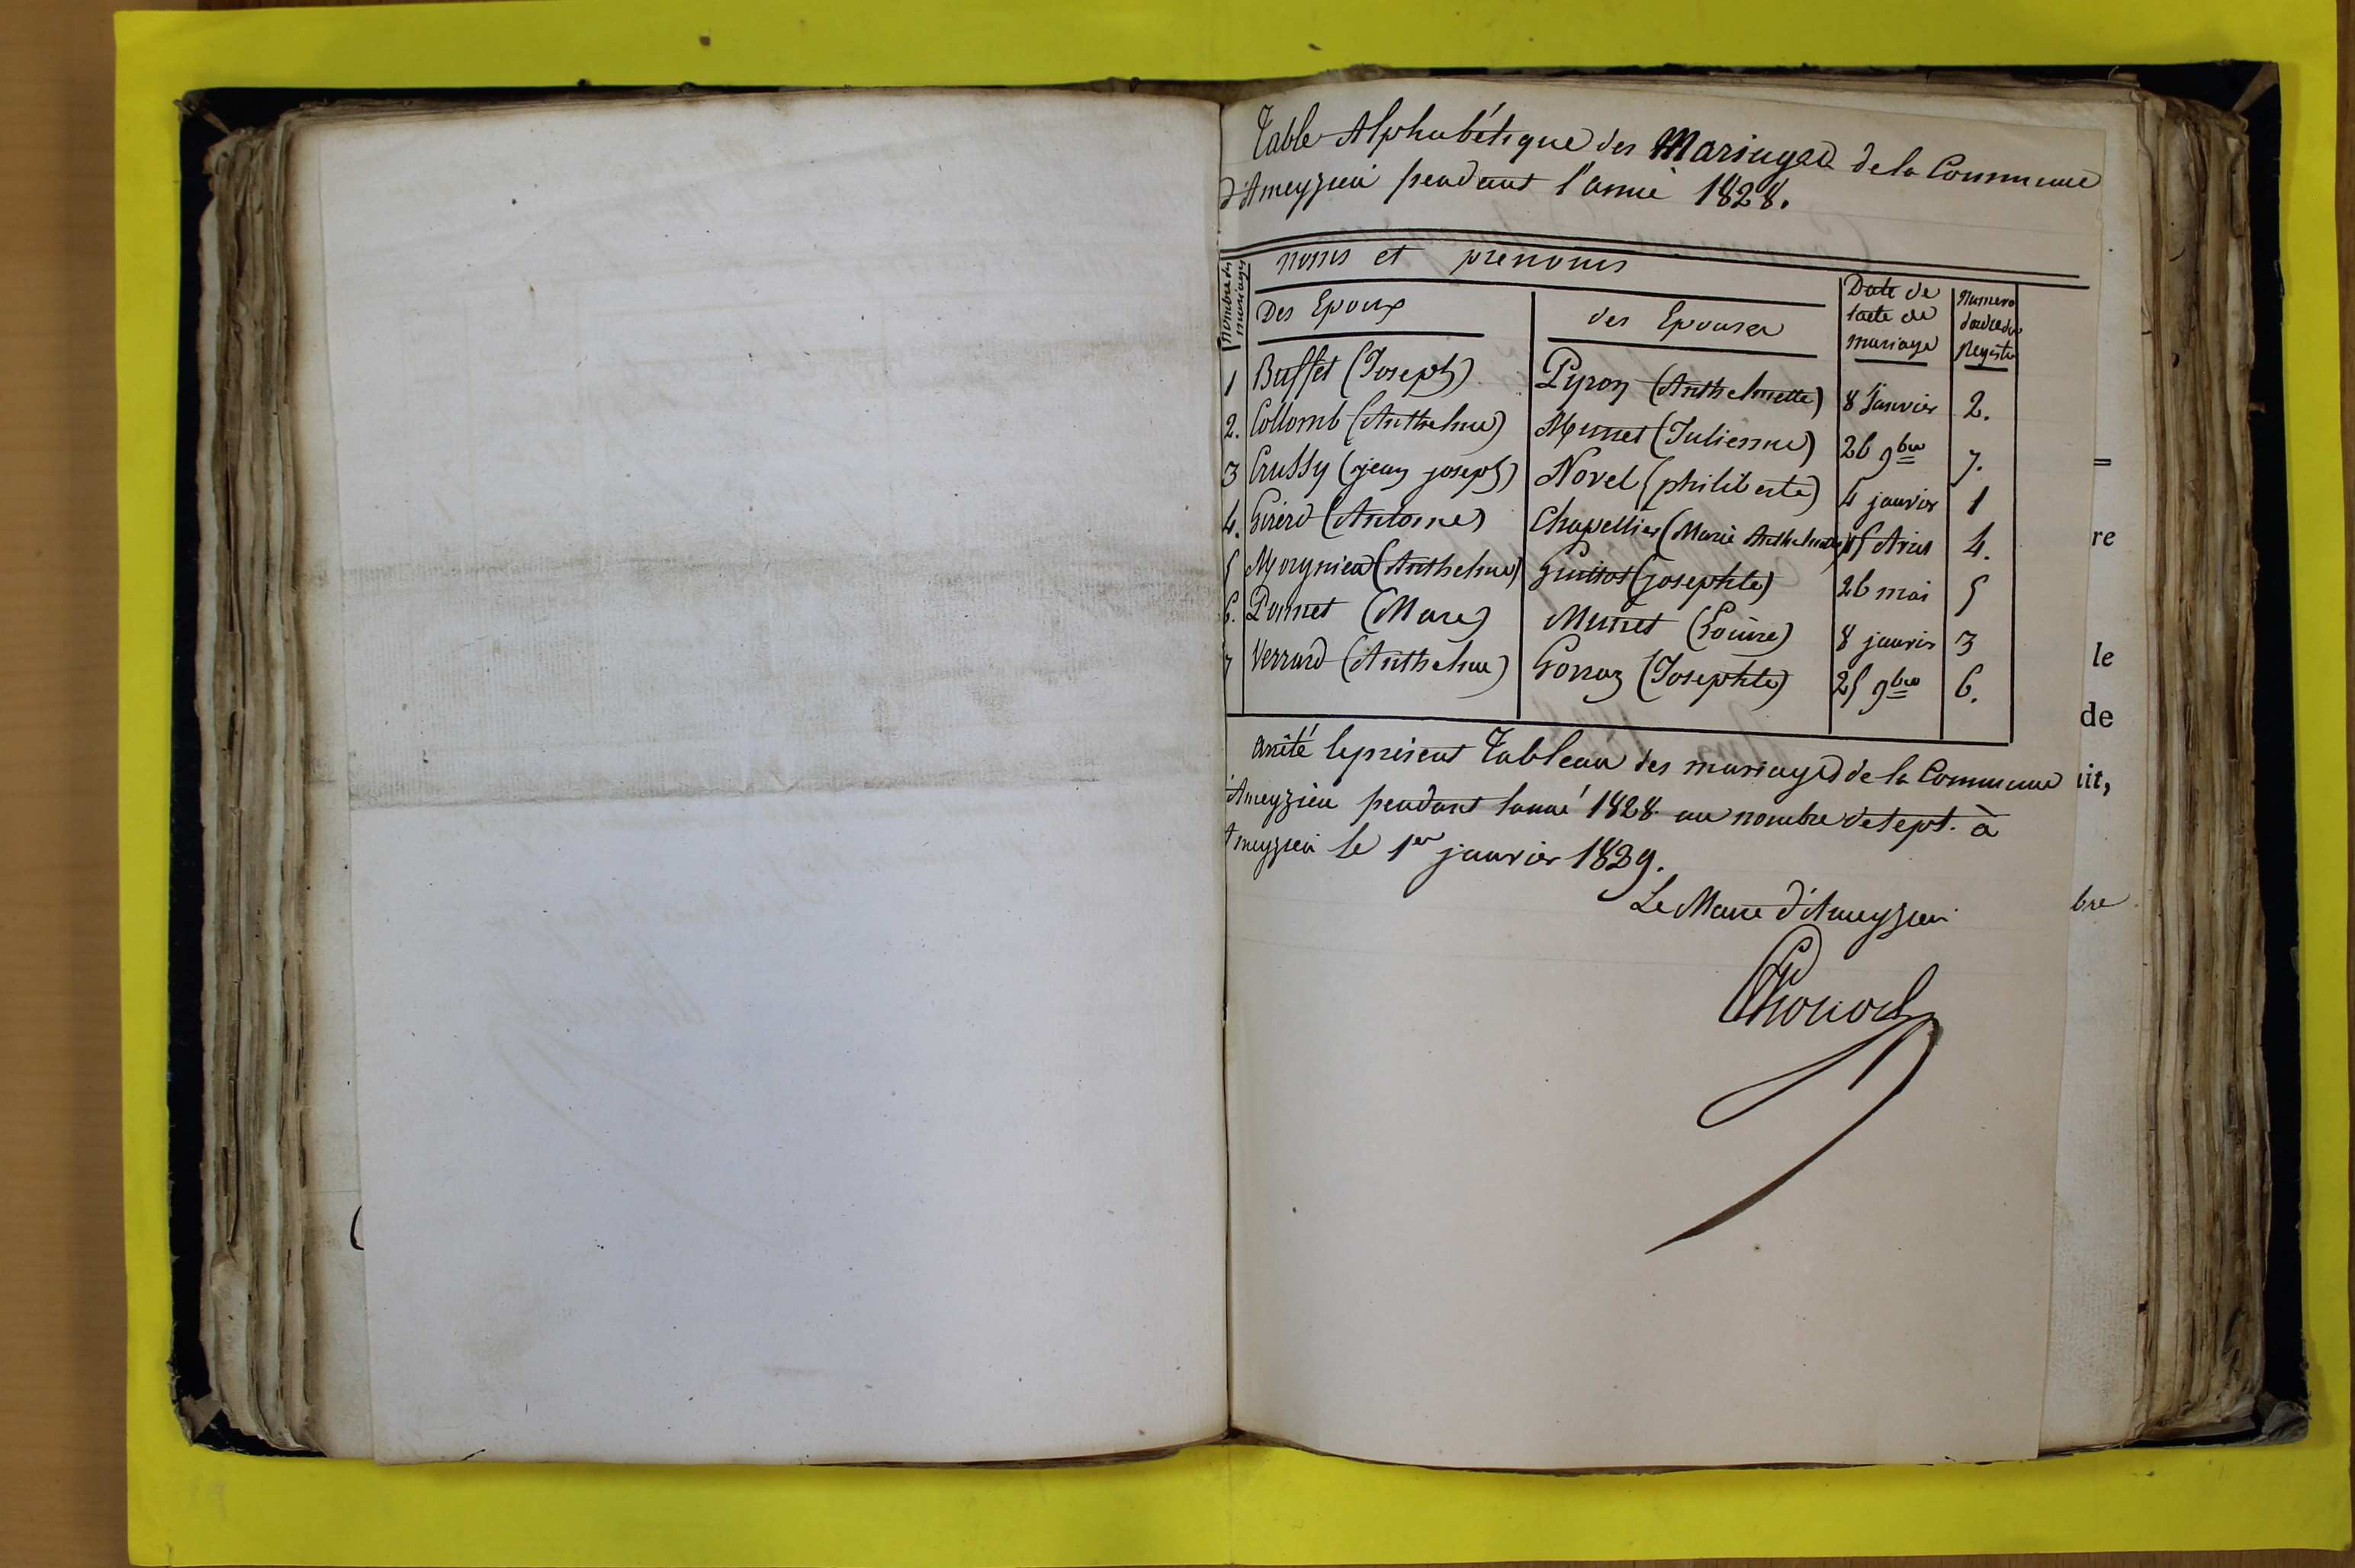 Table Alphabétique des Mariages de la Commune
d'Ameyzieu pendant l'anné 1828.
nombre des mariages
noms et prenoms
Des Epoux
des Epouses
Date de
l'acte de
mariage
Numero
d'ordre du
Registre
1 Buffet (Joseph) Pyron (Anthelmette) 8 Janvier 2.
2. Collomb (Anthelme) Munet (Julienne) 26 9bre 7.
3 Crussy (jean joseph) Novel (philiberte) 4 janvier 1
4. Girerd (Antoine) Chapellier (Marie Anthelmette) 15 Avril 4.
5 Mognieu (Anthelme) Guillot (josephte) 26 mai 5
6. Ponnet (Marc) Munet (Louise) 8 janvier 3
7 Verrard (Anthelme) Gorraz (Josephte) 25 9bre 6.
arrêté le présent Tableau des mariages de la Commune
d'Ameyzieu pendant lanné 1828 au nombre de sept. à
Ameyzieu le 1er janvier 1829.
Le Maire d'Ameyzieu
re
le
de
it,
bre